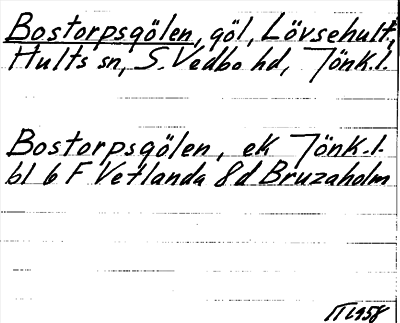 Bostorpsgölen, göl, Lövsehult,
Hults sn, S. Vedbo hd, Jönk.l.
Bostorpsgölen, ek Jönk.l.
bl 6 F Vetlanda 8d Bruzaholm
IT 1958